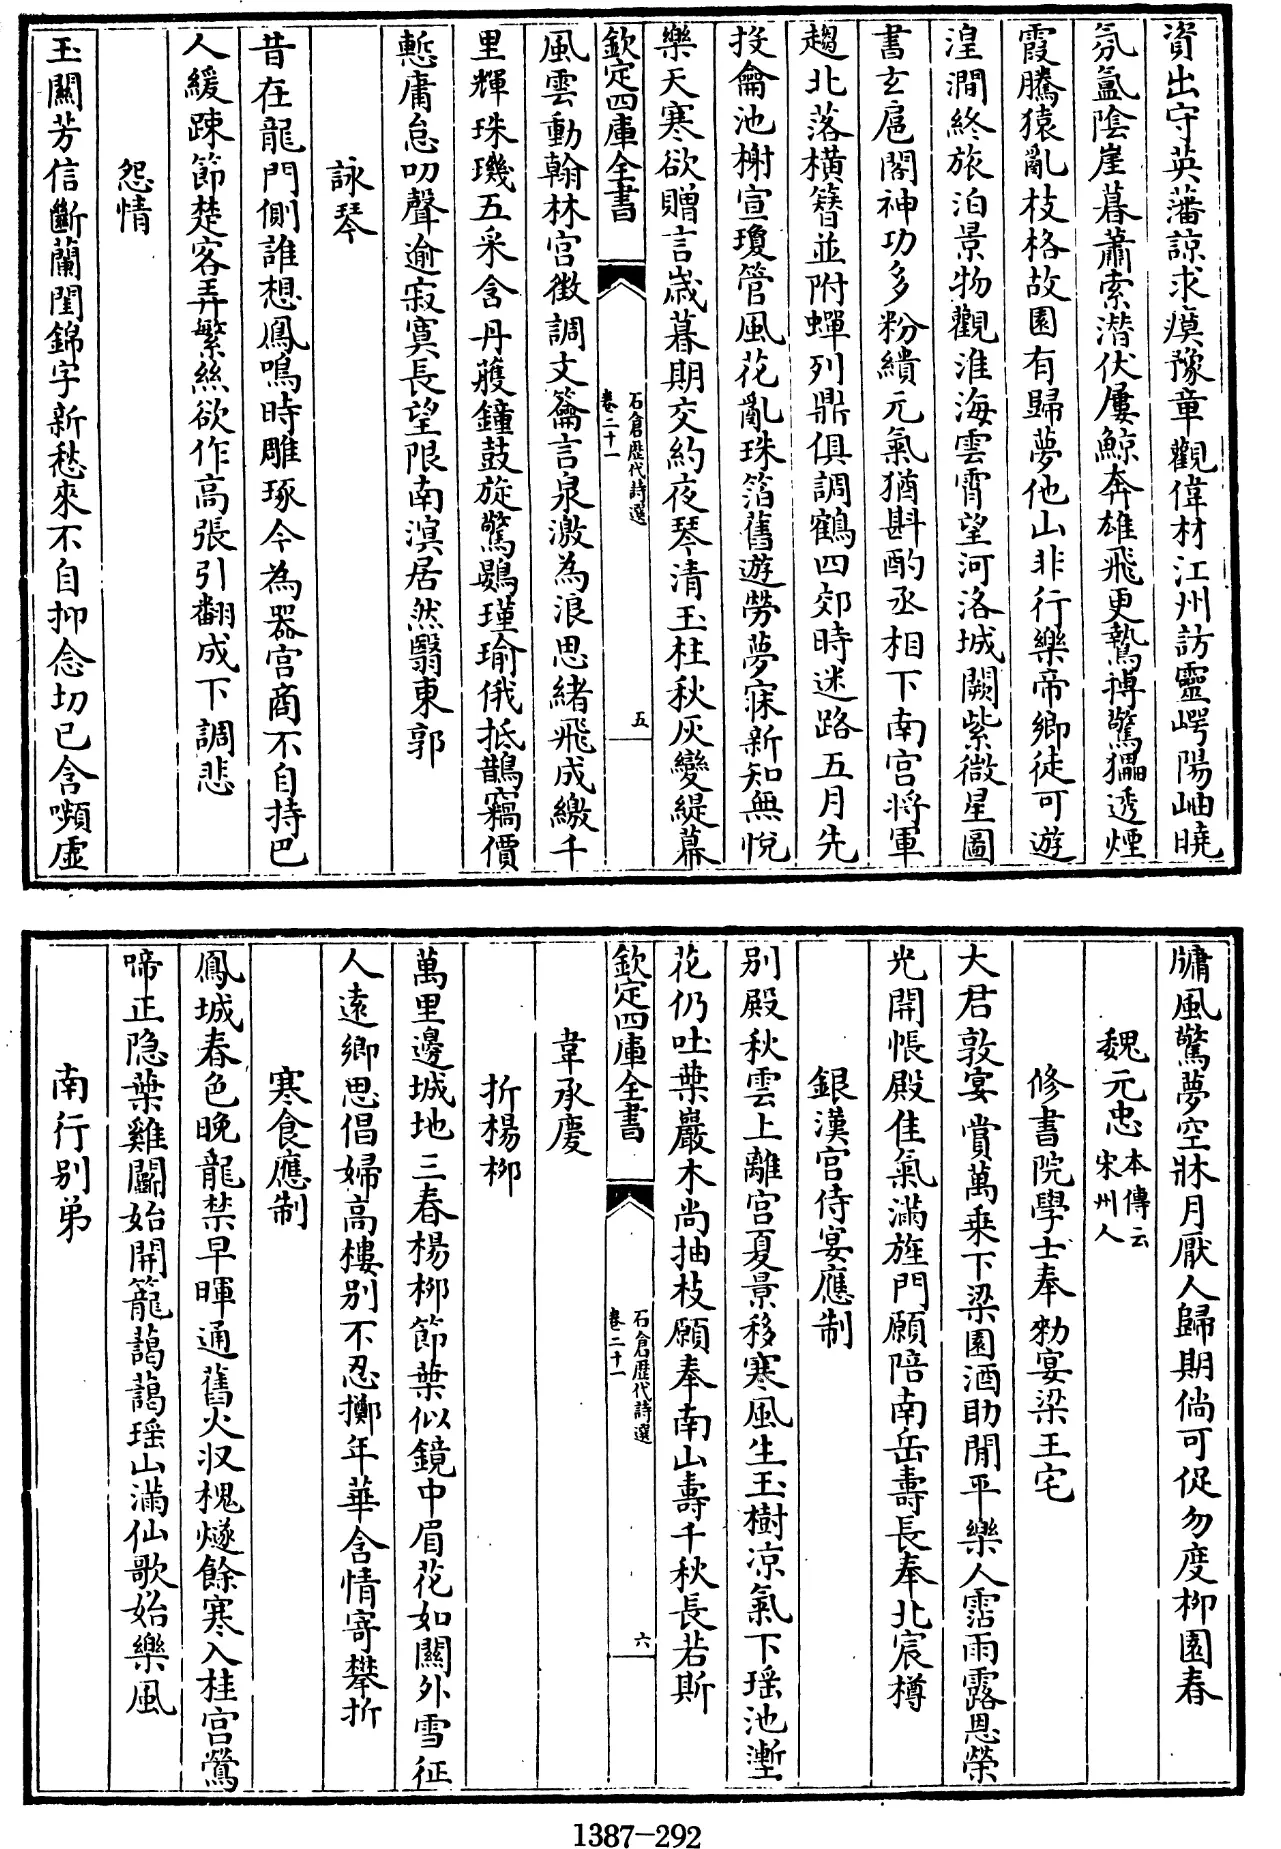 資出守英藩諒求瘼豫章觀偉材江州訪靈崿陽岫曉
氛氲陰崖暮蕭索潛伏屢鯨奔雄飛更鷙搏驚獼透煙
霞騰猿亂枝格故園有歸夢他山非行樂帝鄉徒可遊
湟澗終旅泊景物觀淮海雲霄望河洛城闕紫微星圖
書玄扈閣神功多粉繢元氣猶斟酌丞相下南宫將軍
趨北落橫簪並附蟬列鼎俱調鶴四郊時迷路五月先
投龠池榭宣瓊管風花亂珠箔舊遊勞夢寐新知無悅
樂天寒欲贈言歲暮期交約夜琴清玉柱秋灰變緹幕
欽定四庫全書
石倉歷代詩選
卷二十一
五
風雲動翰林宫徵調文籥言泉激為浪思緒飛成繳千
里輝珠璣五采含丹雘鐘鼓旋驚鷃瑾瑜俄抵鵲竊價
慙庸怠叨聲逾寂寞長望限南溟居然翳東郭
詠琴
昔在龍門側誰想鳳鳴時雕琢今為器宫商不自持巴
人緩踈節楚客弄繁絲欲作高張引翻成下調悲
怨情
玉關芳信斷蘭閨錦字新愁來不自抑念切已含嚬虛
牗風驚夢空牀月厭人歸期倘可促勿度柳園春
魏元忠
本傳云
宋州人
修書院學士奉勑宴梁王宅
大君敦宴賞萬乗下梁園酒助閒平樂人霑雨露恩榮
光開帳殿佳氣滿旌門願陪南岳壽長奉北宸樽
銀漢宫侍宴應制
別殿秋雲上離宫夏景移寒風生玉樹涼氣下瑶池塹
花仍吐葉巖木尚抽枝願奉南山壽千秋長若斯
欽定四庫全書
石倉歷代詩選
卷二十一
六
韋承慶
折楊柳
萬里邊城地三春楊柳節葉似鏡中眉花如關外雪征
人遠鄉思倡婦高樓別不忍擲年華含情寄攀折
寒食應制
鳳城春色晚龍禁早暉通舊火収槐燧餘寒入桂宫鶯
啼正隐葉雞鬭始開籠藹藹瑶山滿仙歌始樂風
南行别弟
1387—292